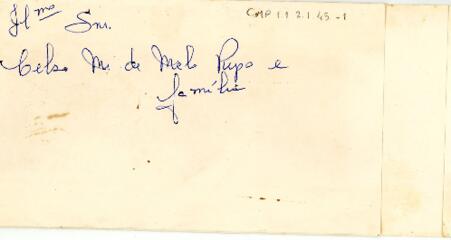 CMP 1.1 2.1 45 - 1
Ilmo Snr.
Celso M. de Melo Pupo e
família